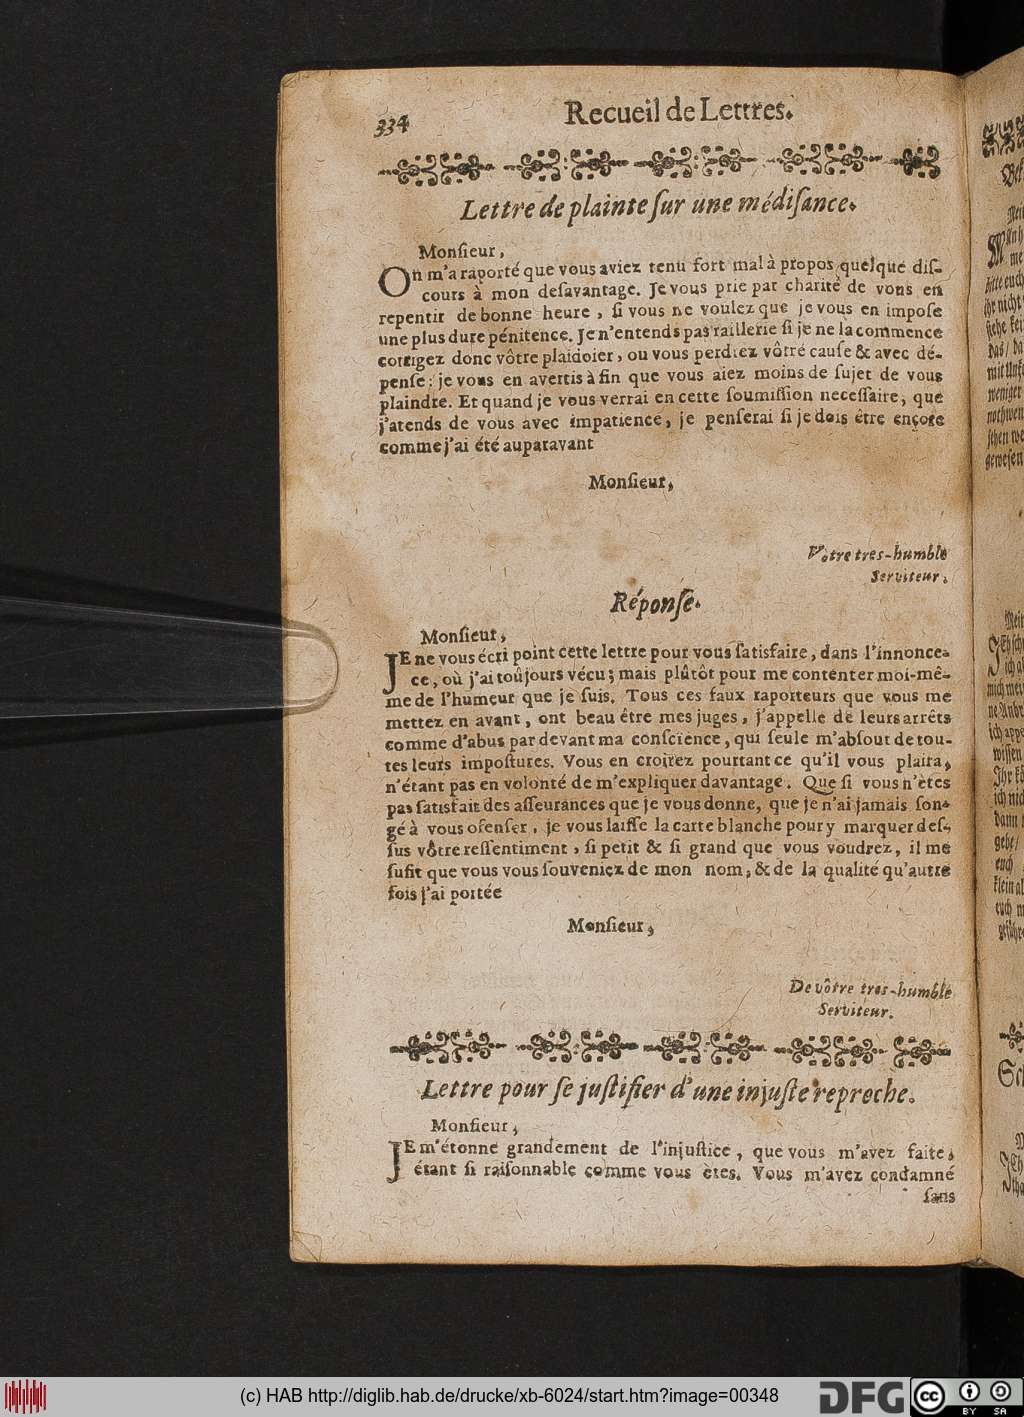 334
Recueil de Lettres.
Lettre de plainte ſur une médiſance.
Monſieur,
On m'a raporté que vous aviez tenu fort mal à propos quelque diſ-
cours à mon deſavantage. Je vous prie par charité de vous en
repentir de bonne heure, ſi vous ne voulez que je vous en impoſe
une plus dure pénitence. Je n'entends pas raillerie ſi je ne la commence
corrigez donc vôtre plaidoier, ou vous perdrez vôtre cauſe & avec dé-
penſe: je vous en avertis à fin que vous aiez moins de ſujet de vous
plaindre. Et quand je vous verrai en cette ſoumiſſion neceſſaire, que
j'atends de vous avec impatience, je penſerai ſi je dois étre encore
comme j'ai été auparavant
Monſieur,
Votre tres-humble
Serviteur.
Réponſe.
Monſieur,
JE ne vous écri point cette lettre pour vous ſatisfaire, dans l'innonce-
ce, où j'ai toûjours vécu; mais plûtôt pour me contenter moi-mê-
me de l'humeur que je ſuis. Tous ces faux raporteurs que vous me
mettez en avant, ont beau être mes juges, j'appelle de leurs arrêts
comme d'abus par devant ma conſcience, qui ſeule m'abſout de tou-
tes leurs impoſtures. Vous en croirez pourtant ce qu'il vous plaira,
n'étant pas en volonté de m'expliquer davantage. Que ſi vous n'ètes
pas ſatisfait des aſſeurances que je vous donne, que je n'ai jamais ſon-
gé à vous ofenſer, je vous laiſſe la carte blanche pour y marquer deſ-
ſus vôtre reſſentiment, ſi petit & ſi grand que vous voudrez, il me
ſufit que vous vous ſouveniez de mon nom, & de la qualité qu'autre
fois j'ai portée
Monſieur,
De vôtre tres-humble
Serviteur.
Lettre pour ſe juſtifier d'une injuſte reproche.
Monſieur,
JE m'étonne grandement de l'injuſtice, que vous m'avez faite,
étant ſi raiſonnable comme vous ètes. Vous m'avez condamné
ſans
(c) HAB http://diglib.hab.de/drucke/xb-6024/start.htm?image=00348
DFG
cc
BY SA